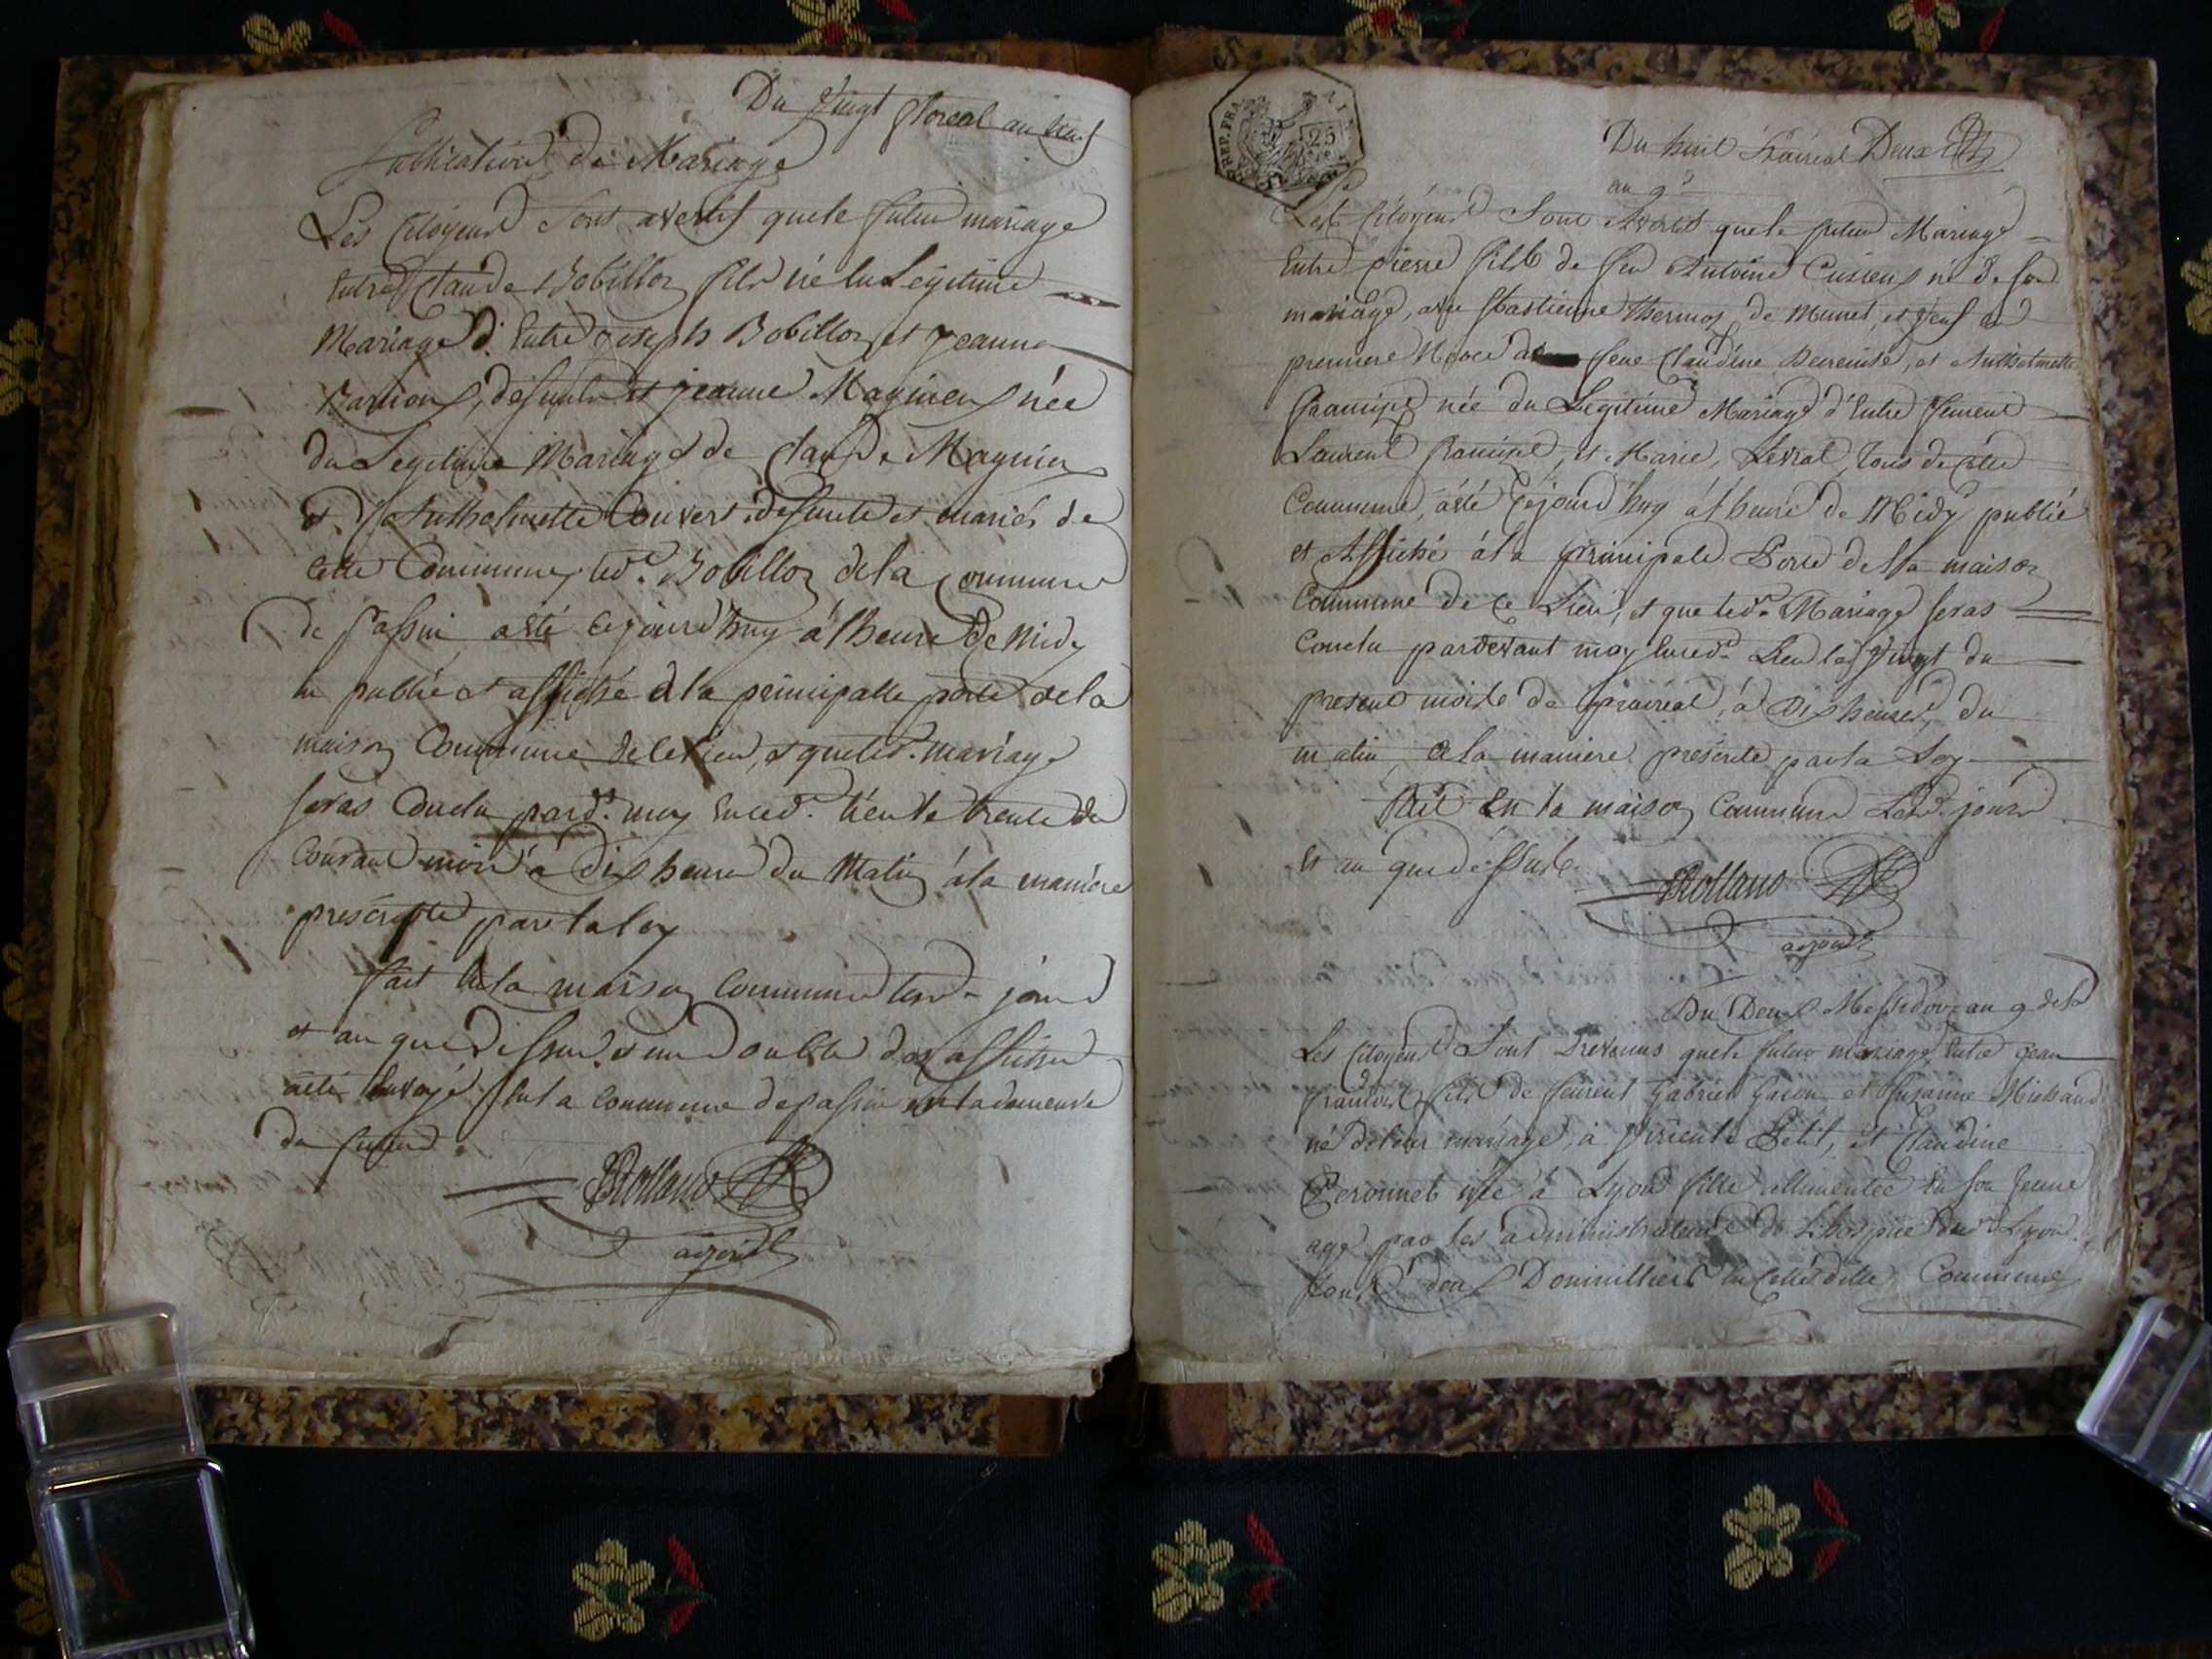 Du vingt floreal an neuf
Publication de Mariage
Les Citoyens sont avertis que le futur mariage
Entre Claude Bobillon fils né du Legitime
Mariage d'Entre Joseph Bobillon et Jeanne
defunts et jeanne Maginen née
du Legitime Mariage de Claude Maginen
et d'Anthelmette Couvert defunte et mariés de
Cette Commune, led. Bobillon dela Commune
de Passin, a été cejourd'huy à l'heure de Midy
lu publié et affiché à la principalle porte de la
maison Commune de ce lieu, et que led. mariage
seras Conclu pard. moy Enced. lieu le trente du
Courant mois à dix heure du Matin à la maniere
prescritte par la loy
fait En la maison Commune lesd. jour
et an que dessus et un double des affiches
a été Envoyé sur la Commune de Passin de la demeure
du futur
JRolland
adjoint
REP. FRA
25
Du huit Prairial
an 9e
Les Citoyens Sont Avertis que le futur Mariage
Entre pierre fils de feu Antoine Cusien né de son
mariage, avec Sbastienne Thermos de Munet, et veuf en
premiere Noce de feue Claudine et Anthelmette
francipe née du Legitime Mariage d'Entre
Laurent francipe, et Marie, Levrat, tous de cette
Commune, a été Cejourd'huy à l'heure de Midy publié
et Affiché à la principale Porte de la maison
Commune de ce Lieu, et que led. Mariage seras
Conclu pardevant moy Enced. Lieu le vingt du
present mois de prairéal, à dix heures, du
matin, à la maniere prescrite par la Loy
fait En la maison Commune Lesd. jour
et an que dessus
JRolland
adjoint
Du Deux Messidor an 9 de la
Les Citoyens Sont Prevenus que le futur mariage Entre Jean
francois fils de Gabriel et Susanne Michaud
né de leur mariage, à Virieu le Petit, et Claudine
Peronnet née à Lyon fille allimentée En son Jeune
age par les administrateurs de L'hospice de Lyon
tous deux Domicilliers En cette ditte Commune